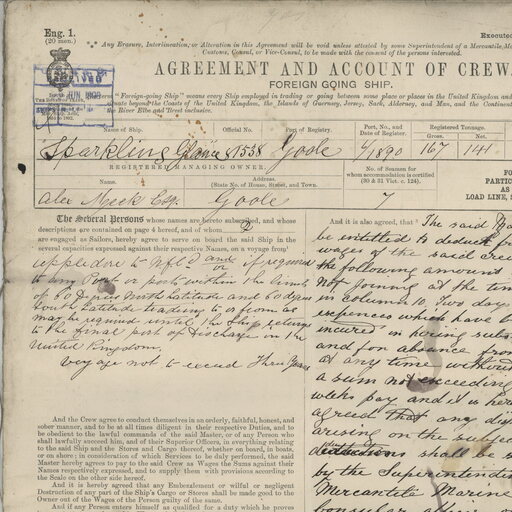 Eng. 1.
(20 men.)
Executed
Any Erasure, Interlineation, or Alteration in this Agreement will be void unless attested by some Superintendent of a Mercantile
Customs, Consul, or Vice-Consul, to be made with the consent of the persons interested.
AGREEMENT AND ACCOUNT OF CREW
FOREIGN GOING SHIP.
"Foreign-going Ship" means every Ship employed in trading or going between some place or places in the United Kingdom and
beyond the Coasts of the United Kingdom, the Islands of Guernsey, Jersey, Sark, Alderney, and Man, and the Continent
River Elbe and Brest inclusive.
Name of Ship. Official No. Port of Registry. Port, No., and Date of Register. Registered Tonnage.
Gross. Nett.
Sparkling Glance 81538 Goole 6/1890 167 141
REGISTERED MANAGING OWNER.
No. of Seamen for whom accommodation is certified (30 & 31 Vict. c. 124).
Name. Address.
(State No. of House, Street, and Town.)
FO
PARTIC
AS
LOAD LINE,
Alec Meek Esq. Goole 7
The Several Persons whose names are hereto subscribed, and whose
descriptions are contained on page 4 hereof, and of whom 2
are engaged as Sailors, hereby agree to serve on board the said Ship in the
several capacities expressed against their respective Names, on a voyage from
appledore to Nfld and or if required
to any Port or ports within the limits
of 60 degrees North latitude and 60 degrees
South latitude trading to or from as
may be required until the Ship returns
to the final port of discharge in the
United Kingdom.
voyage not to exceed Three Years
And the Crew agree to conduct themselves in an orderly, faithful, honest, and
sober manner, and to be at all times diligent in their respective Duties, and to
be obedient to the lawful commands of the said Master, or of any Person who
shall lawfully succeed him, and of their Superior Officers, in everything relating
to the said Ship and the Stores and Cargo thereof, whether on board, in boats,
or on shore; in consideration of which Services to be duly performed, the said
Master hereby agrees to pay to the said Crew as Wages the Sums against their
Names respectively expressed, and to supply them with provisions according to
the Scale on the other side hereof.
And it is hereby agreed that any Embezzlement or wilful or negligent
Destruction of any part of the Ship's Cargo or Stores shall be made good to the
Owner out of the Wages of the Person guilty of the same.
And if any Person enters himself as qualified for a duty which he proves
And it is also agreed, that The said
be entitled to deduct from
wages of the said crew
the following amount
not joining at the time
in column 10. Two days
expences which have
incured in hiring subs
and for absence from
at any time without
a sum not exceeding
weeks pay and it is here
agreed that any dis
arising on the subject
deductions shall be
by the Superintendent
Mercantile Marine
consular